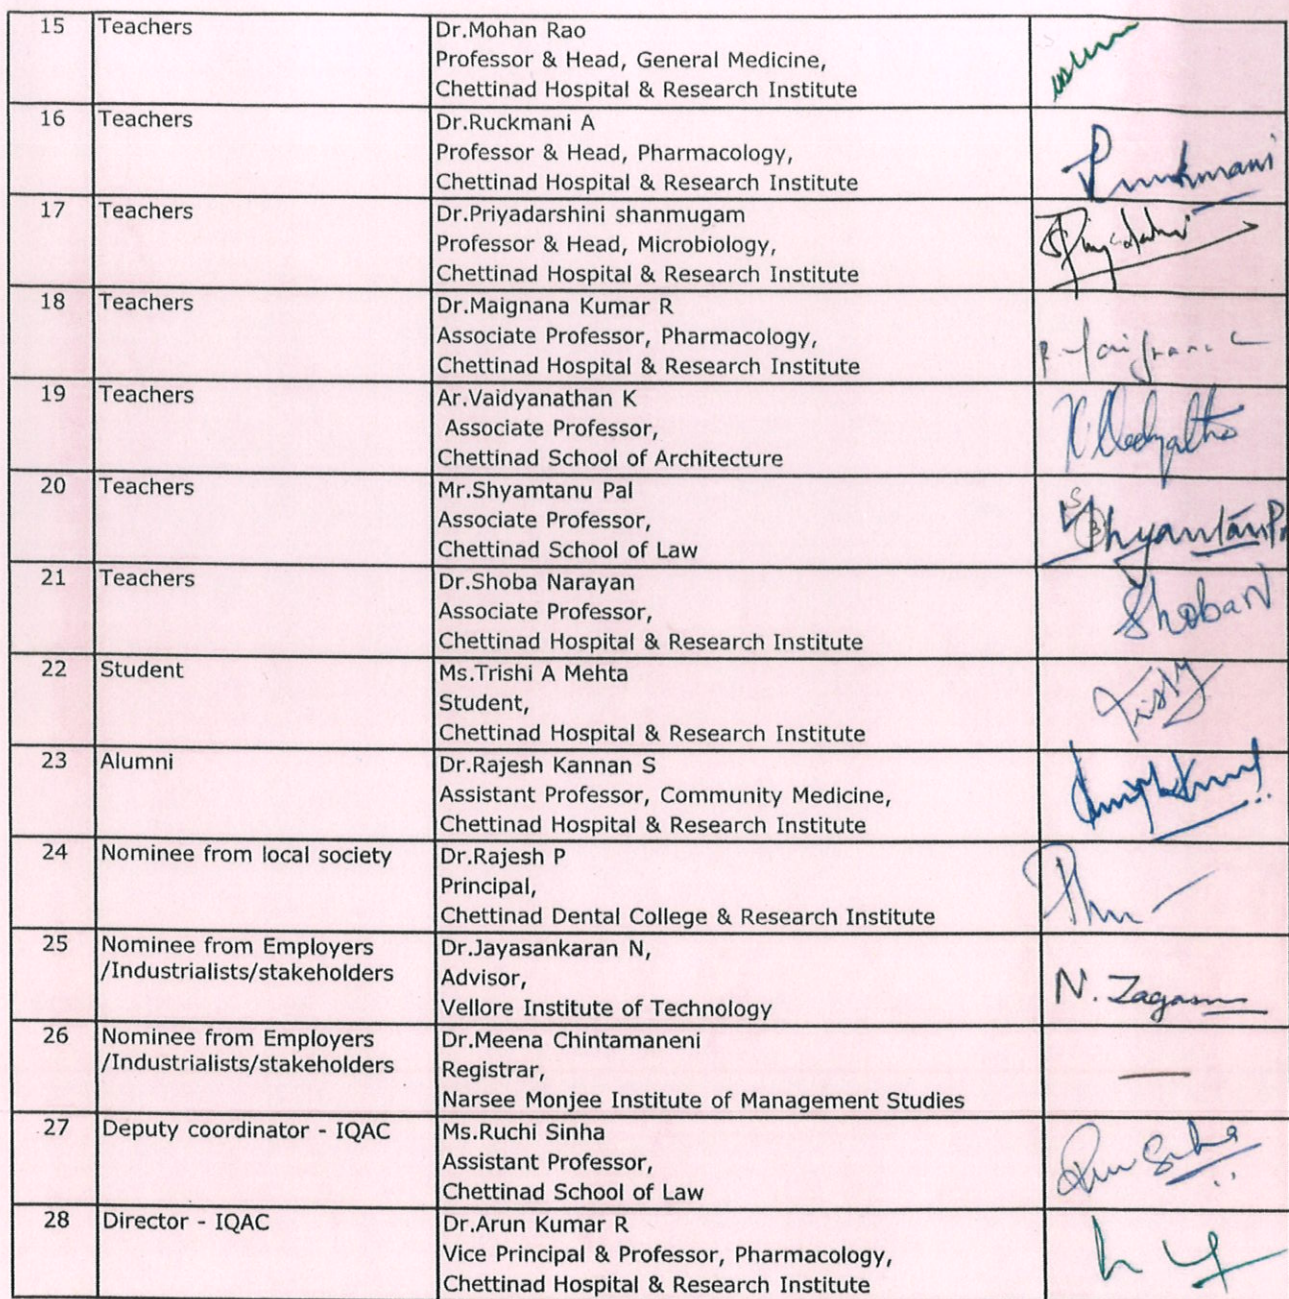 15 Teachers Dr.Mohan Rao
Professor & Head, General Medicine,
Chettinad Hospital & Research Institute
16 Teachers Dr.Ruckmani A
Professor & Head, Pharmacology,
Chettinad Hospital & Research Institute
Ruckmani
17 Teachers Dr.Priyadarshini shanmugam
Professor & Head, Microbiology,
Chettinad Hospital & Research Institute
18 Teachers Dr.Maignana Kumar R
Associate Professor, Pharmacology,
Chettinad Hospital & Research Institute
19 Teachers Ar.Vaidyanathan K
Associate Professor,
Chettinad School of Architecture
20 Teachers Mr.Shyamtanu Pal
Associate Professor,
Chettinad School of Law
21 Teachers Dr.Shoba Narayan
Associate Professor,
Chettinad Hospital & Research Institute
ShobaN
22 Student Ms.Trishi A Mehta
Student,
Chettinad Hospital & Research Institute
23 Alumni Dr.Rajesh Kannan S
Assistant Professor, Community Medicine,
Chettinad Hospital & Research Institute
24 Nominee from local society Dr.Rajesh P
Principal,
Chettinad Dental College & Research Institute
25 Nominee from Employers Dr.Jayasankaran N,
/Industrialists/stakeholders Advisor,
Vellore Institute of Technology
26 Nominee from Employers Dr.Meena Chintamaneni
/Industrialists/stakeholders Registrar,
Narsee Monjee Institute of Management Studies
27 Deputy coordinator - IQAC Ms.Ruchi Sinha
Assistant Professor,
Chettinad School of Law
28 Director - IQAC Dr.Arun Kumar R
Vice Principal & Professor, Pharmacology,
Chettinad Hospital & Research Institute